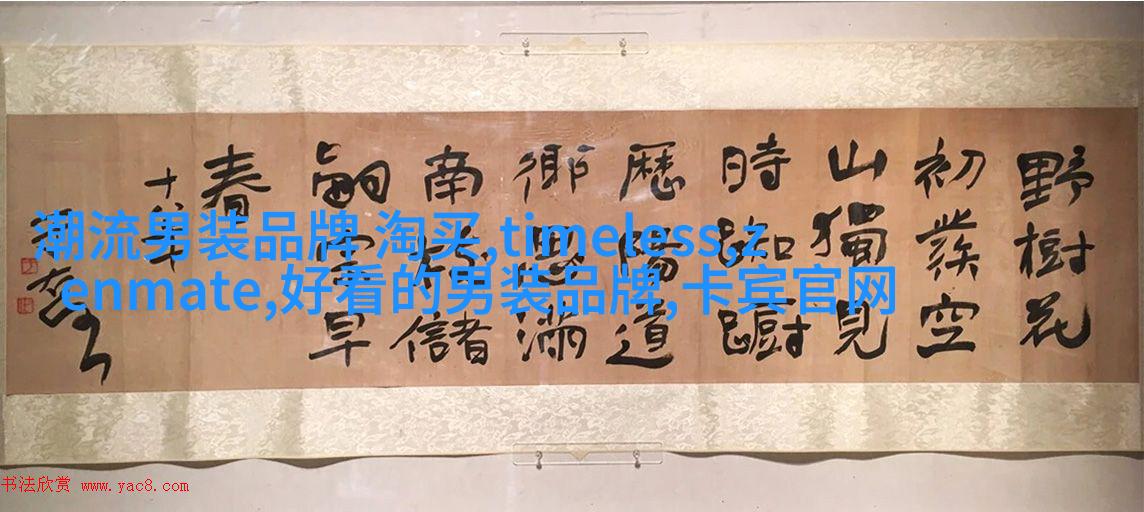 野樹花
初發空
山獨見
時踟躕
歷陽道
鄉思滿
南枝儲
嗣宗早
春
十八年
潮流男装品牌 淘买,timeless,z
enmate,好看的男装品牌,卡宾官网
书法欣赏 www.yac8.com